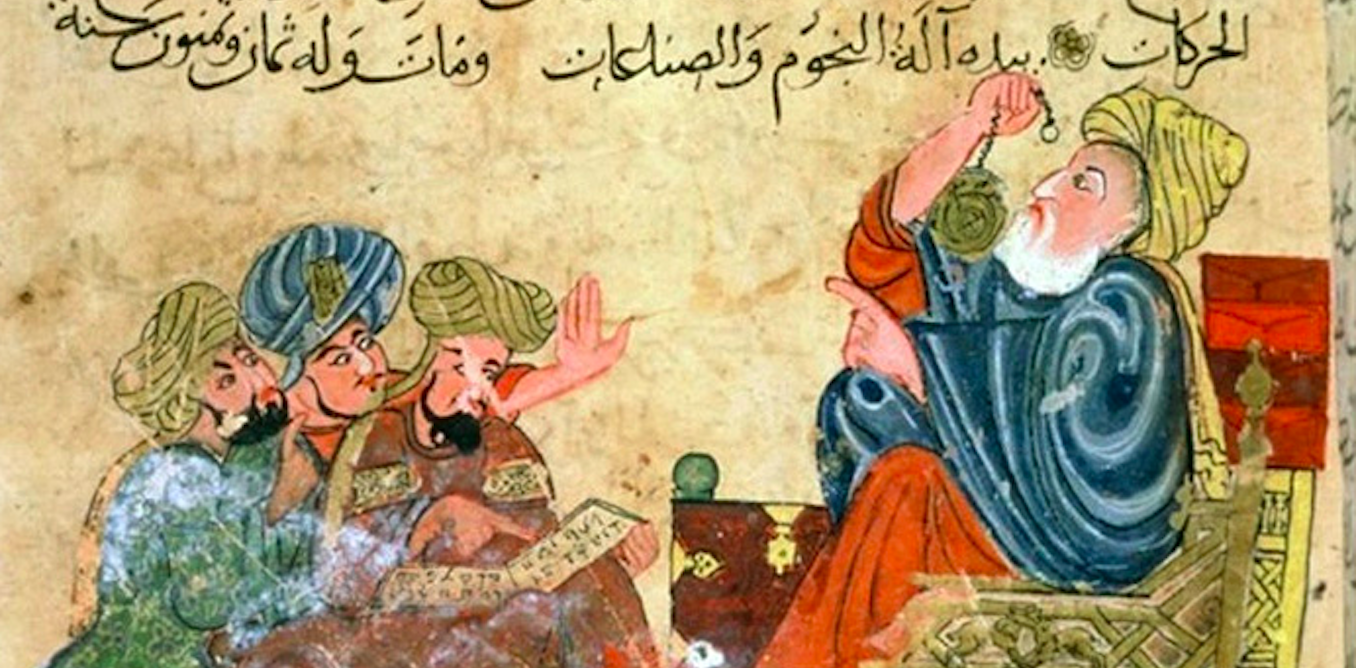 الحركات بيده آلة النجوم والصناعات ومات وله ثمان وثمنون سنة